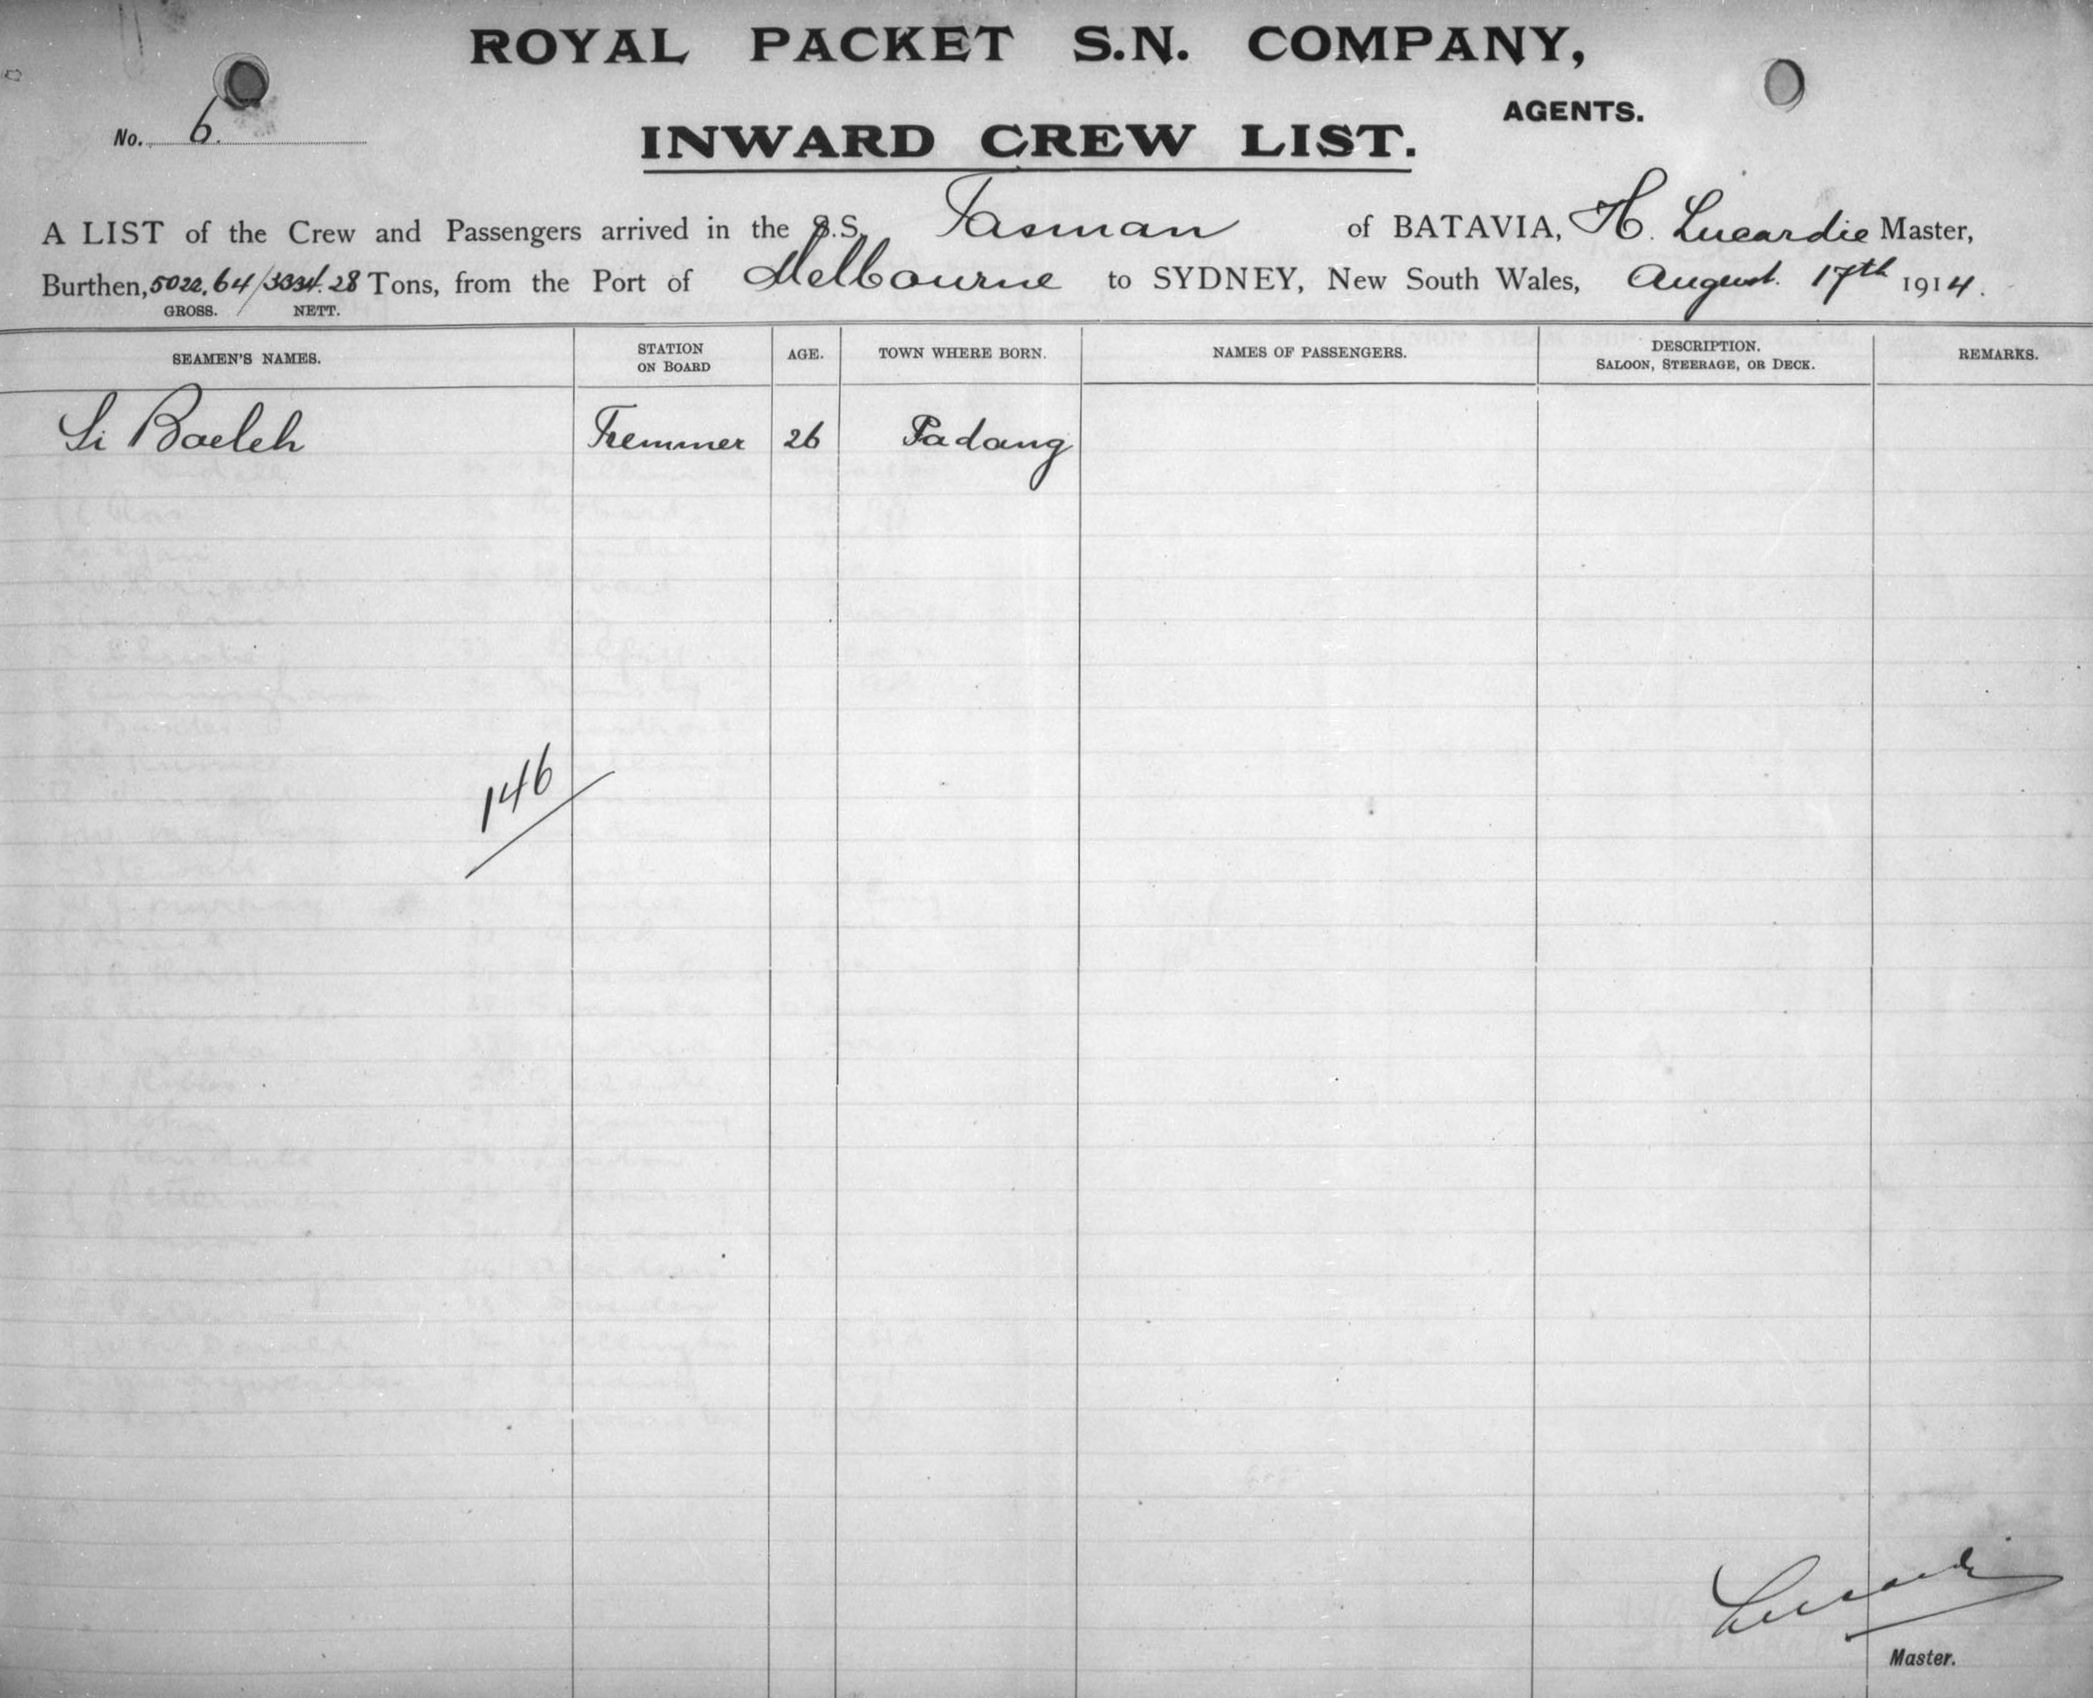 ROYAL PACKET S.N. COMPANY,
AGENTS.
No. 6.
INWARD CREW LIST.
A LIST of the Crew and Passengers arrived in the S.S. Tasman of BATAVIA, H. Lucardie Master,
Burthen, 5022.64/3334.28 Tons, from the Port of Melbourne to SYDNEY, New South Wales, August 17th 1914.
GROSS. NETT.
SEAMEN'S NAMES. STATION ON BOARD AGE. TOWN WHERE BORN. NAMES OF PASSENGERS. DESCRIPTION. SALOON, STEERAGE, OR DECK. REMARKS.
Si Baeleh Tremmer 26 Padang
146
Lucardie
Master.